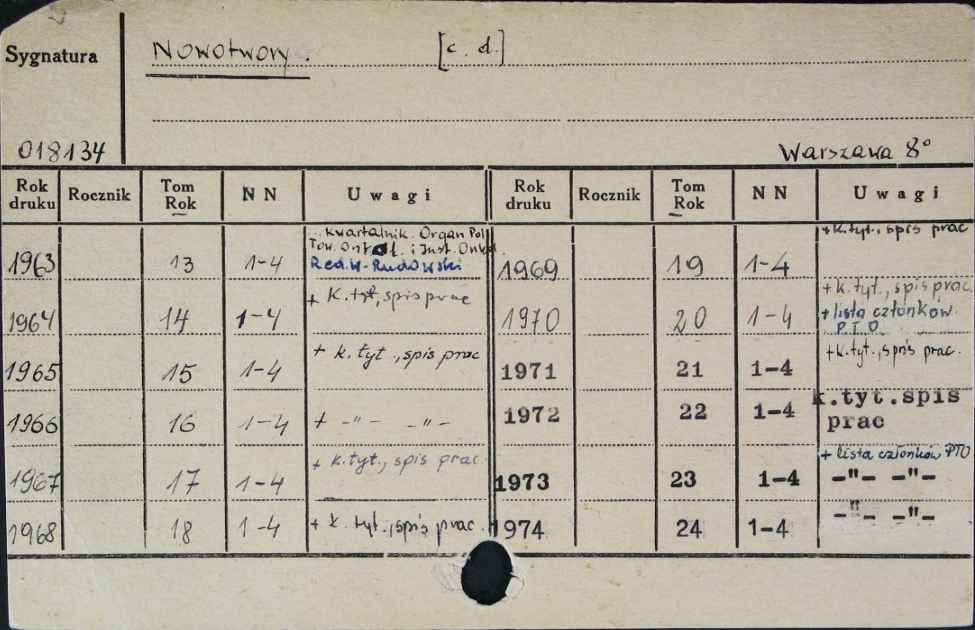 Sygnatura
Nowotwory. [c. d.]
018134
Warszawa 8°
Rok druku Rocznik Tom Rok NN Uwagi Rok druku Rocznik Tom Rok NN Uwagi
kwartalnik. Organ Pol.
Tow. i Inst. Onkol.
1963 13 1-4 Red. W. Rudowski
1964 14 1-4 + K. tyt, spis prac
1965 15 1-4 + k. tyt., spis prac
1966 16 1-4 + -"- -"-
1967 17 1-4 + k. tyt., spis prac.
1968 18 1-4 + k. tyt., spis prac.
1969 19 1-4 + k. tyt., spis prac
1970 20 1-4 + k. tyt., spis prac.
+ lista członków
P.T.O.
1971 21 1-4 + k. tyt., spis prac.
1972 22 1-4 k.tyt.spis
prac
+ lista członków PTO
1973 23 1-4 -"- -"-
1974 24 1-4 -"- -"-